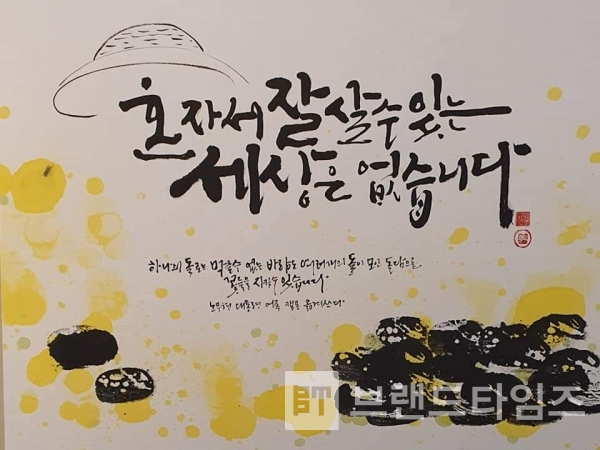 혼자서 잘 살 수 있는
세상은 없습니다
하나의 돌로는 막을 수 없는 바람도 여러개의 돌이 모인 돌담으로
꽃들을 지킬 수 있습니다
노무현 대통령 어록
브랜드타임즈